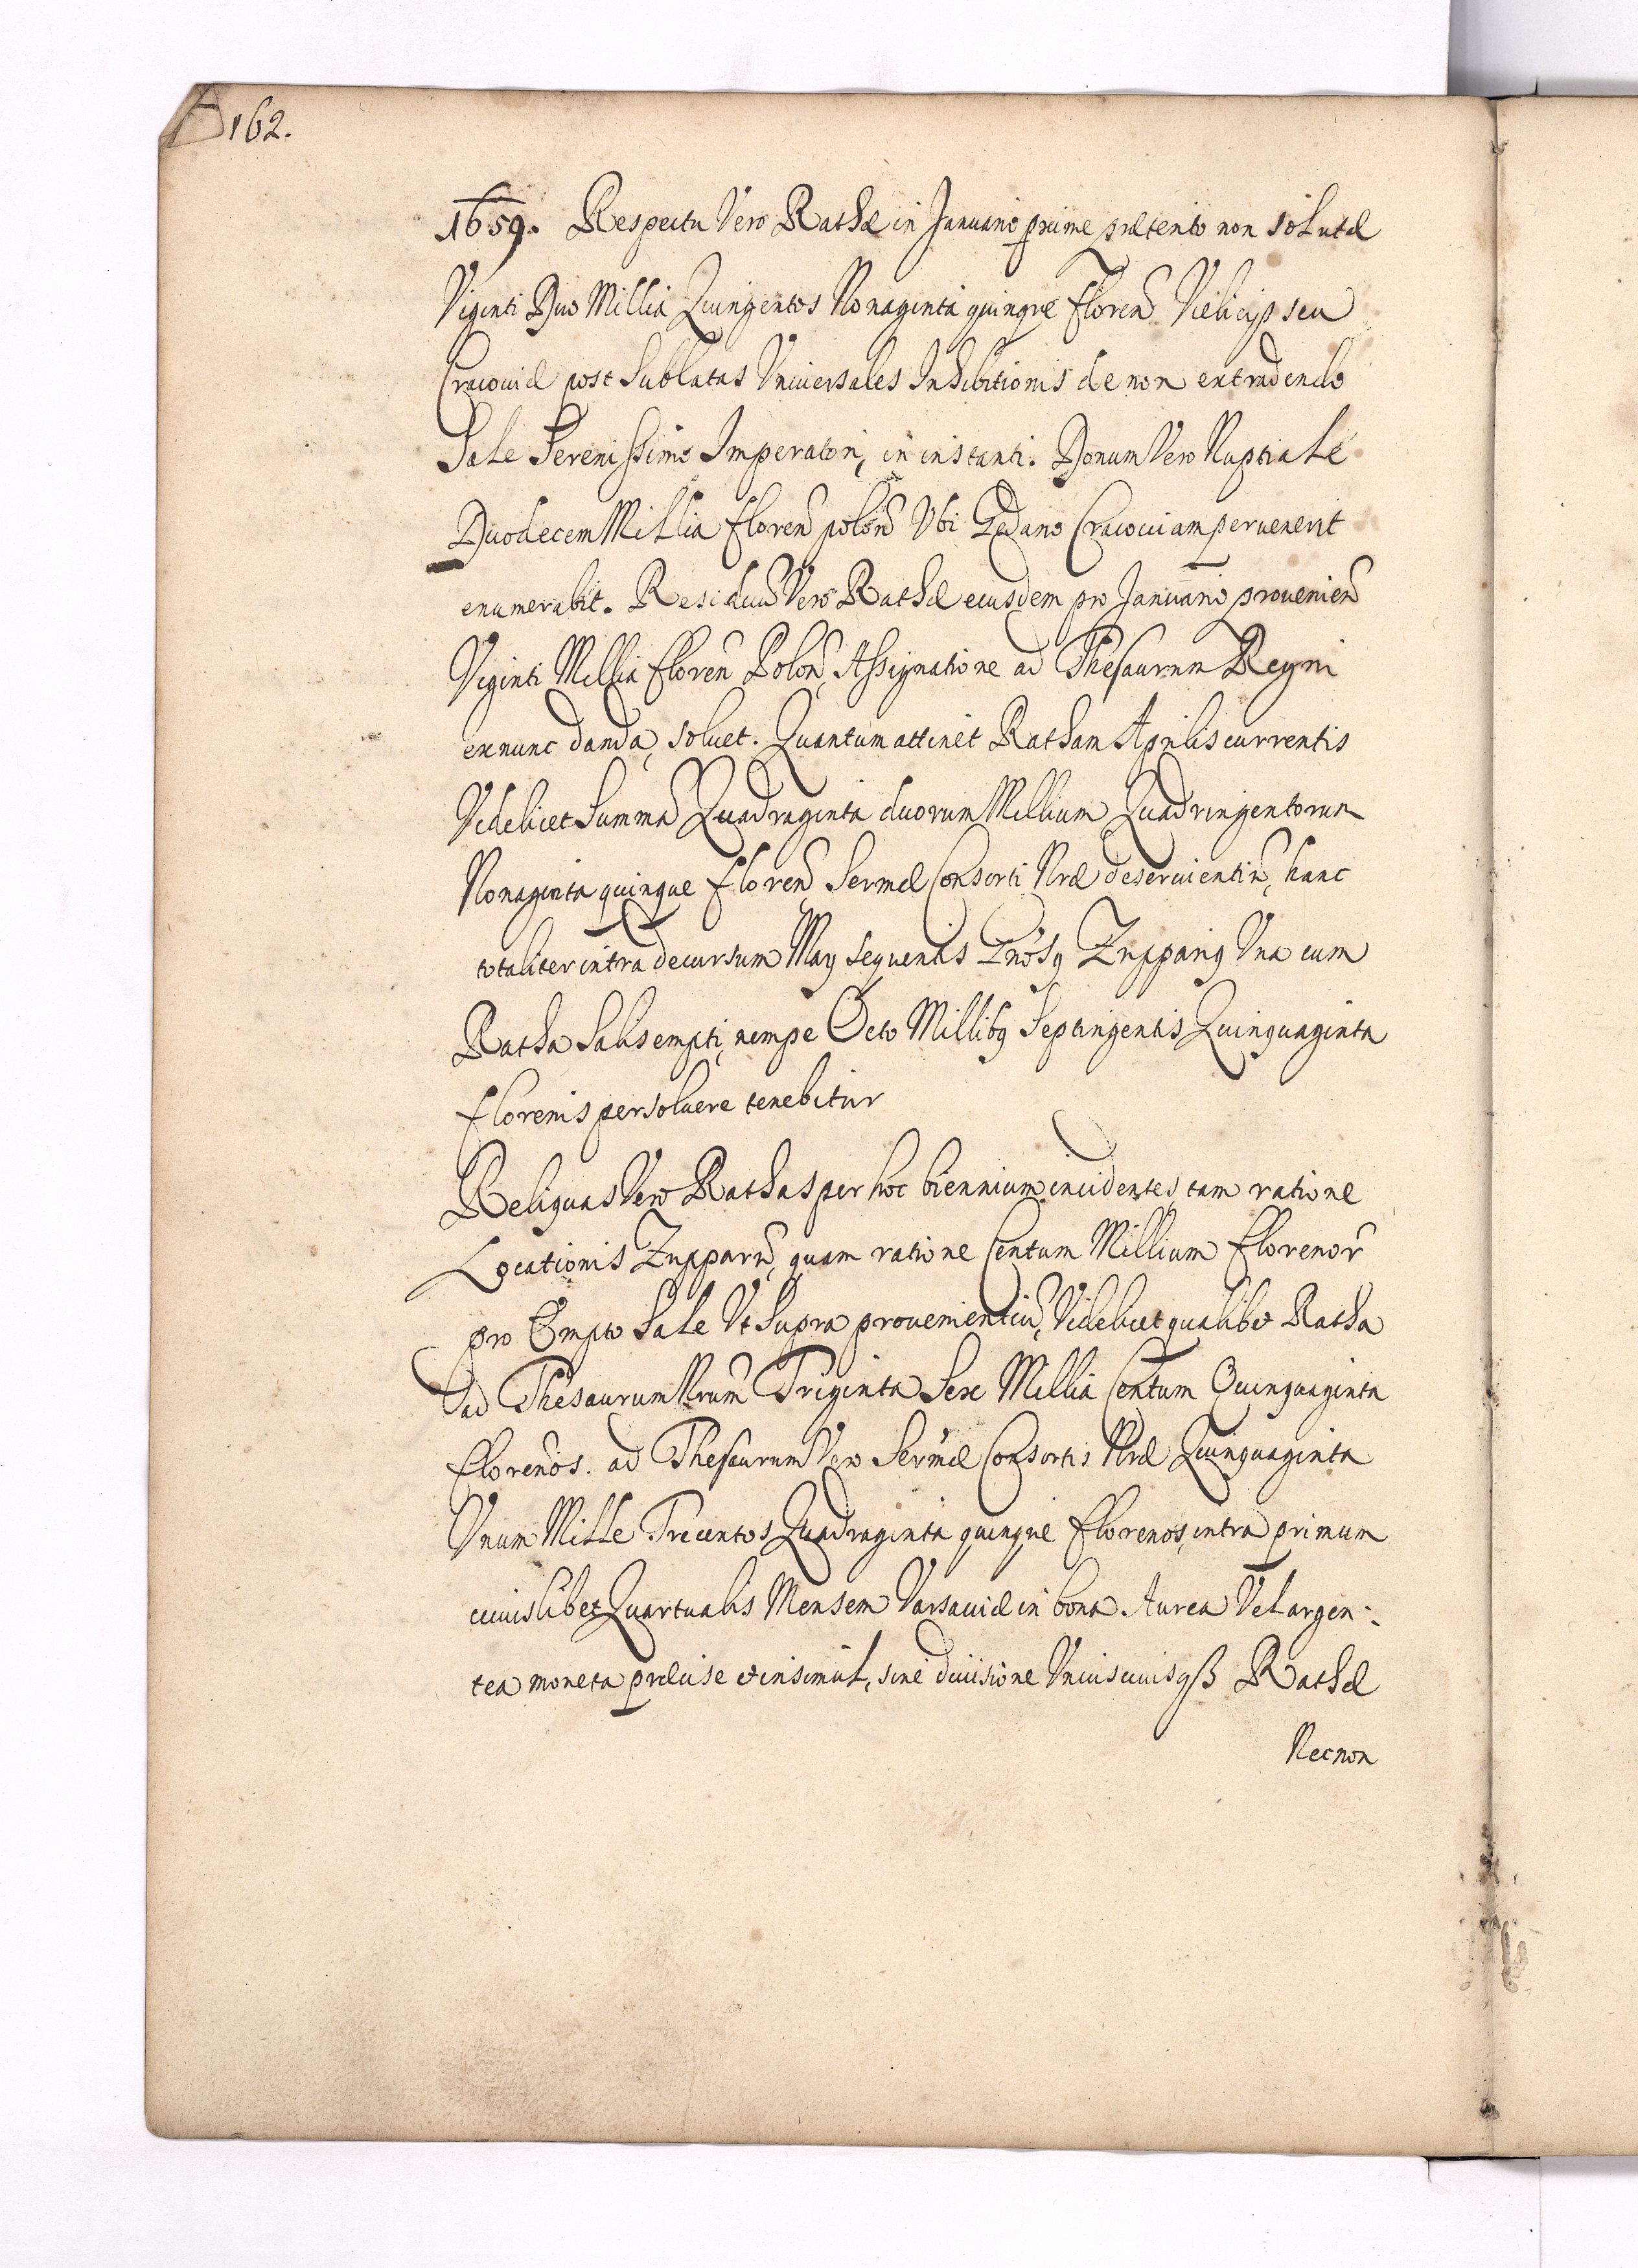 162.
1659. Respectu Vero Rathæ in Januario prime præterito non solutæ
Viginti Duo Millia Quingentos Nonaginta quinque floren Vieliciȷs seu
Cracoviæ post Sublatas Vniuersales Inhibitionis de non extradendo
Sale Serenissimo Imperatori, in instanti. Donum Vero Nuptiale
Duodecem Millia floren polon Vbi Gedano Cracouiam peruenerit
enumerabit. Residuu Vero Rathæ eiusdem pro Januario prouenien
Viginti Millia floren Polon, Assignatione ad Thesaurum Regni
exnunc danda, soluet. Quantum attinet Ratham Aprilis currentis
Videlicet Summa Quadraginta duorum Millium Quadringentorum
Nonaginta quinque floren Sermæ Consorti Nræ deseruientin, hanc
totaliter intra decursum Maȷ sequentis Zuppariȷ Vna cum
Ratha Salis empti, nempe Octo Millibq Septingentis Quinquaginta
florenis persoluere tenebitur
Reliquas Vero Rathas per hoc biennium incidentes, tam ratione
Locationis Zupparu, quam ratione Centum Millium florenor
pro Empto Sale Vt Supra prouenientiu, Videlicet qualibet Ratha
ad Thesaurum Nrum Triginta Sex Millia Centum Quinquaginta
florenos. ad Thesaurum Vero Sermæ Consortis Nræ Quinquaginta
Vnum Mille Trecentos Quadraginta quinque florenos, intra primum
cuiuslibet Quartualis Mensem Varsauiæ in bona Aurea Vel argen:
tea moneta præcise et insimul, sine diuisione Vniuscuiusqß Rathæ
Necnon